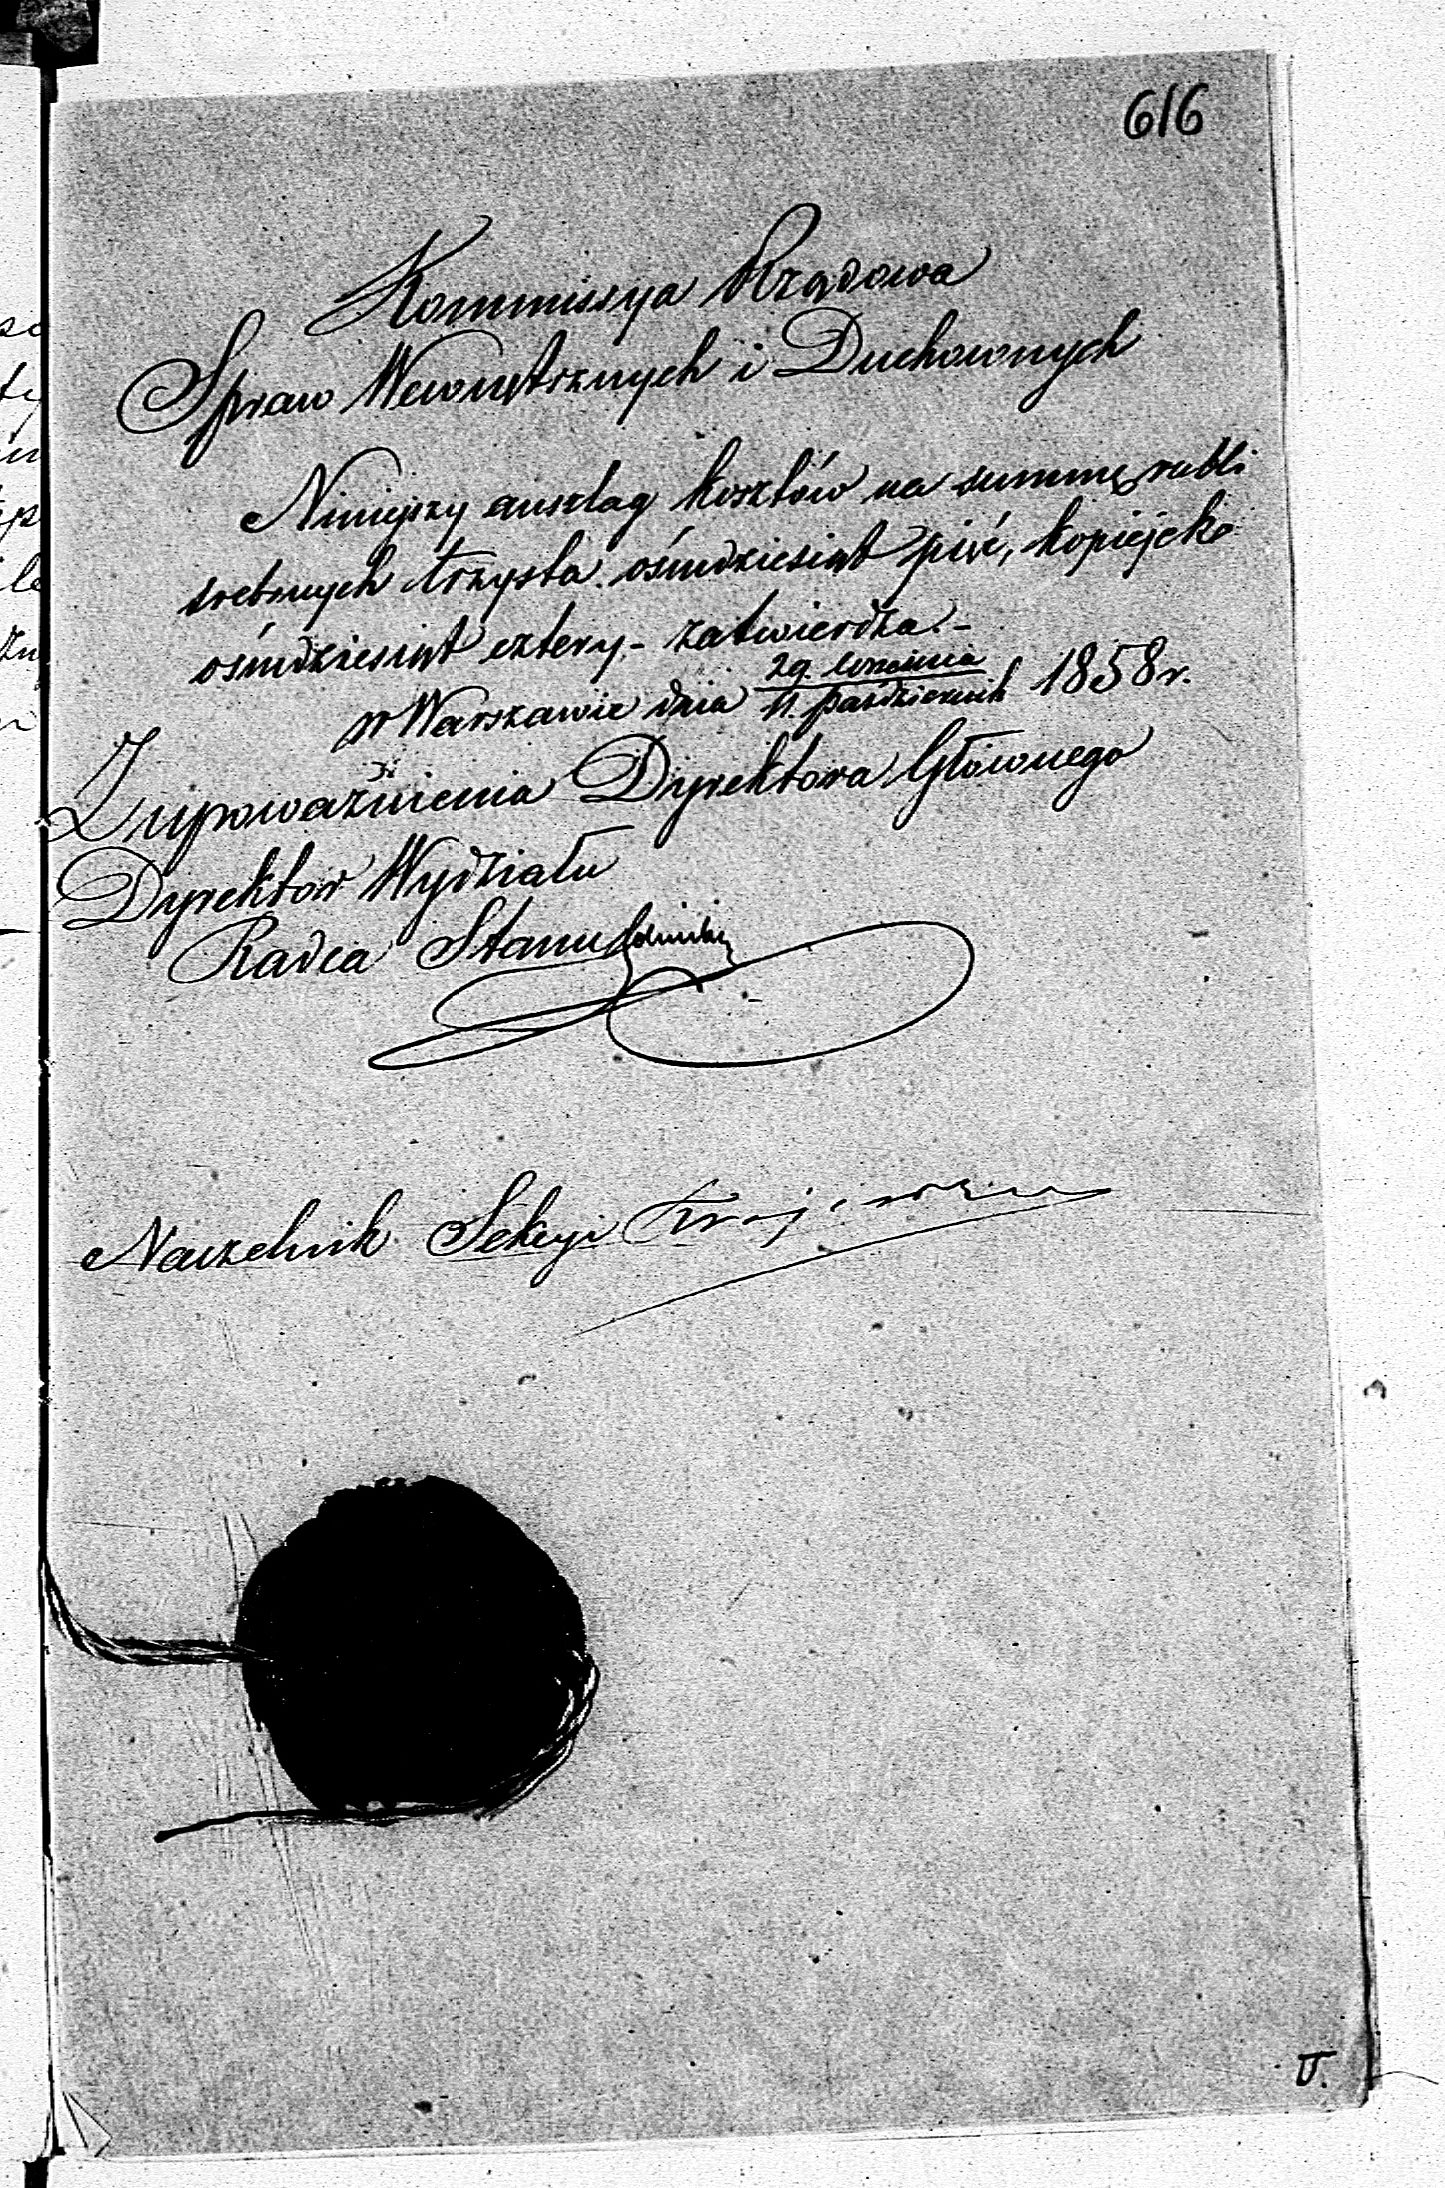 616
Kommissya Rządowa
Spraw Wewnętrznych i Duchownych
Niniejszy anszlag kosztów na summę rubli
srebrnych trzysta ośmdziesiąt pięć, kopiejek
ośmdziesiąt cztery - zatwierdza. -
w Warszawie dnia 29. Września / 11. Października 1858 r.
Z upoważnienia Dyrektora Głównego
Dyrektor Wydziału
Radca Stanu
Naczelnik Sekcyi